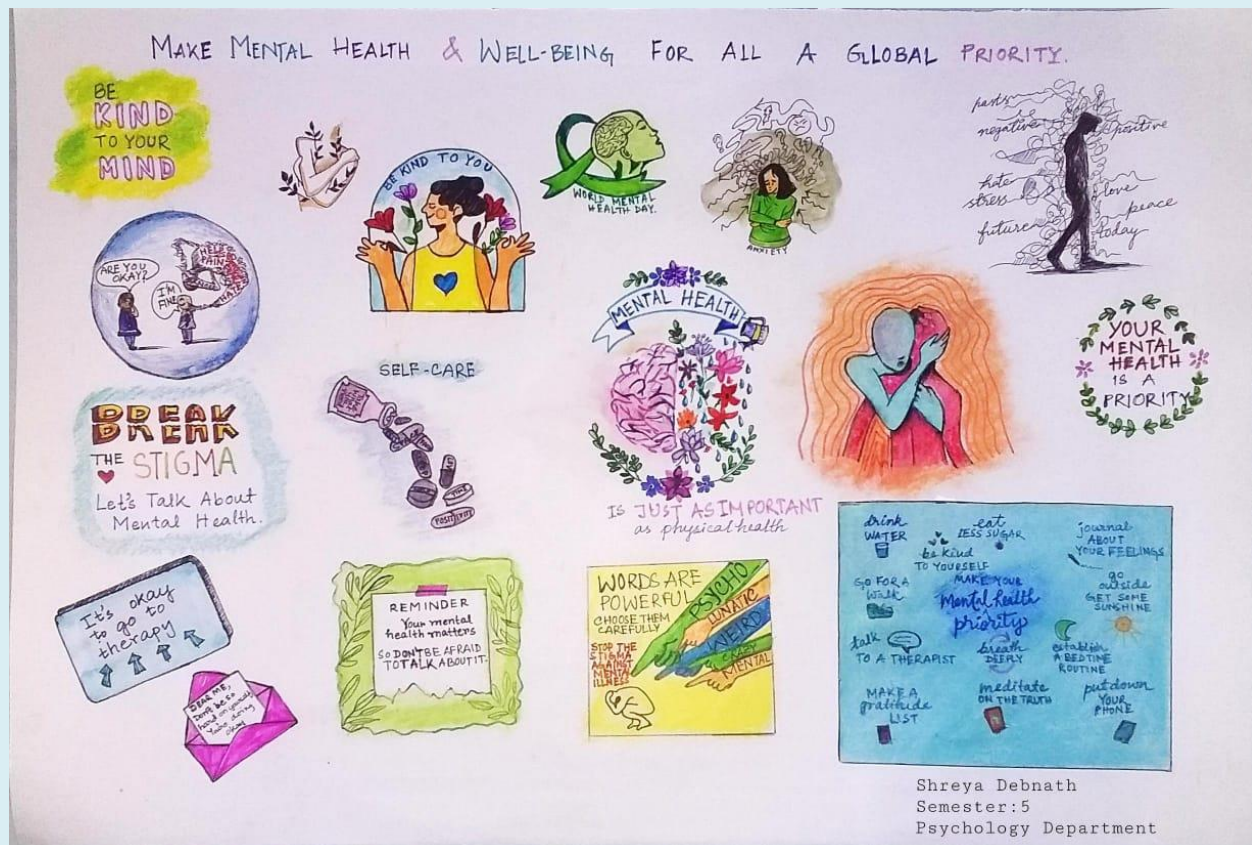 MAKE MENTAL HEALTH & WELL-BEING FOR ALL A GLLOBAL PRIORITY.
BE
KIND
TO YOUR
MIND
BE KIND TO YOU
WORLD MENTAL
HEALTH DAY.
ANXIETY
pasts
negative
positive
hate
stress
love
peace
future
today
ARE YOU
OKAY?
I'M
FINE
HELP
PAIN
HATE
MENTAL HEALTH
IS JUST AS IMPORTANT
as physical health
YOUR
MENTAL
HEALTH
IS A
PRIORITY
BREAK
THE STIGMA
Let's Talk About
Mental Health.
SELF-CARE
POSITIVITY
It's okay
to go to
therapy
DEAR ME,
Don't be so
hard on yourself
You're doing
okay
REMINDER
Your mental
health matters
SO DON'T BE AFRAID
TO TALK ABOUT IT.
WORDS ARE
POWERFUL
CHOOSE THEM
CAREFULLY
STOP THE
STIGMA
AGAINST
MENTAL
ILLNESS
PSYCHO
LUNATIC
WEIRD
CRAZY
MENTAL
drink
WATER
eat
LESS SUGAR
journal
ABOUT
YOUR FEELINGS
be kind
TO YOURSELF
GO FOR A
walk
MAKE YOUR
Mental health
A
priority
go
outside
GET SOME
SUNSHINE
talk
TO A THERAPIST
breath
DEEPLY
establish
A BEDTIME
ROUTINE
MAKE A
gratitude
LIST
meditate
ON THE TRUTH
put down
YOUR
PHONE
Shreya Debnath
Semester:5
Psychology Department